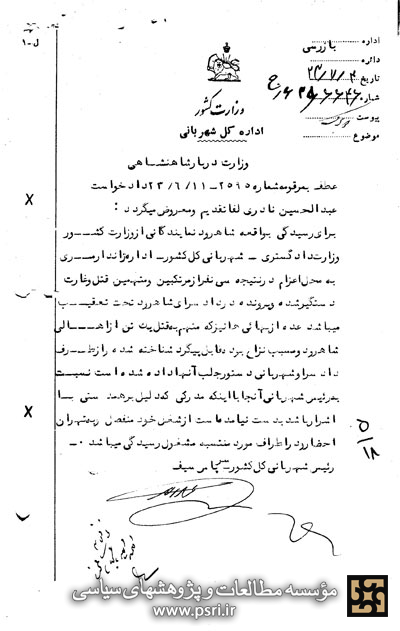 اداره بازرسی
دائره
تاریخ ۲۳/۷/۲
شماره
پیوست
موضوع
ل-۱
وزارت کشور
اداره کل شهربانی
وزارت دربار شاهنشاهی
عطف بمرقومه شماره ۲۵۹۵-۲۳/۶/۱۱ دادخواست
عبدالحسین نادری لفا تقدیم ومعروض میگردد :
برای رسیدگی بواقعه شاهرود نمایندگانی ازوزارت کشور
وزارت دادگستری - شهربانی کل کشور - اداره ژاندارمری
به محل اعزام درنتیجه سی نفر ازمرتکبین ومتهمین قتل وغارت
دستگیرشده وپرونده دردادسرای شاهرود تحت تعقیب
میباشد عده ازبهائی هانیزکه متهم بقتل یک تن ازاهالی
شاهرود ومسبب نزاع بوده وقابل پیگرد شناخته شده ازطرف
دادسرا وشهربانی دستورجلب آنهاداده شده است نسبت
به رئیس شهربانی آنجا با اینکه مدرکی که دلیل برهمدستی با
اشرارباشد بدست نیامده است ازشغل خود منفصل وبتهران
احضار ودراطراف مورد منتسبه مشغول رسیدگی میباشد ۰-
رئیس شهربانی کل کشور- سیف
۵/۱۸
مؤسسه مطالعات و پژوهشهای سیاسی
www.psri.ir